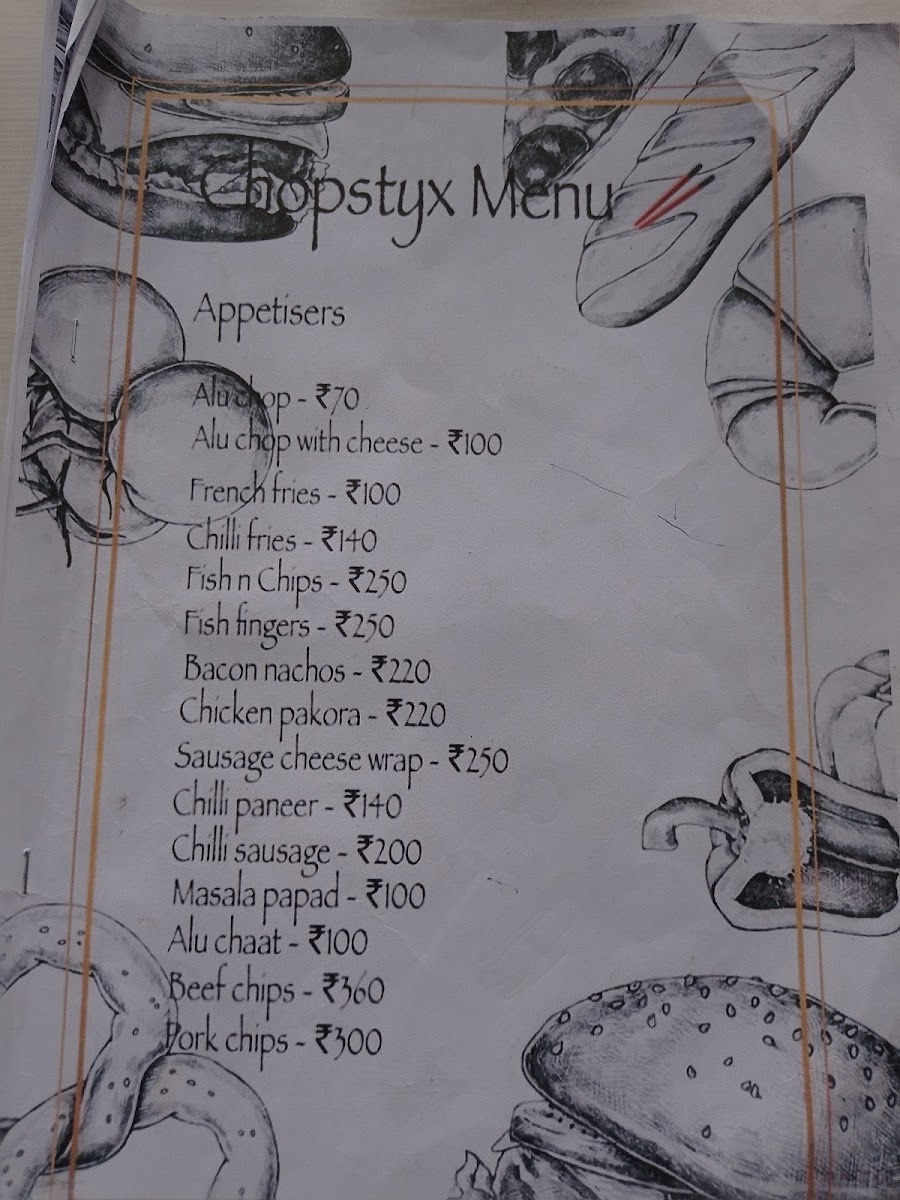 Chopstyx Menu
Appetisers
Alu chop - ₹70
Alu chop with cheese - ₹100
French fries - ₹100
Chilli fries - ₹140
Fish n Chips - ₹250
Fish fingers - ₹250
Bacon nachos - ₹220
Chicken pakora - ₹220
Sausage cheese wrap - ₹250
Chilli paneer - ₹140
Chilli sausage - ₹200
Masala papad - ₹100
Alu chaat - ₹100
Beef chips - ₹360
Pork chips - ₹300